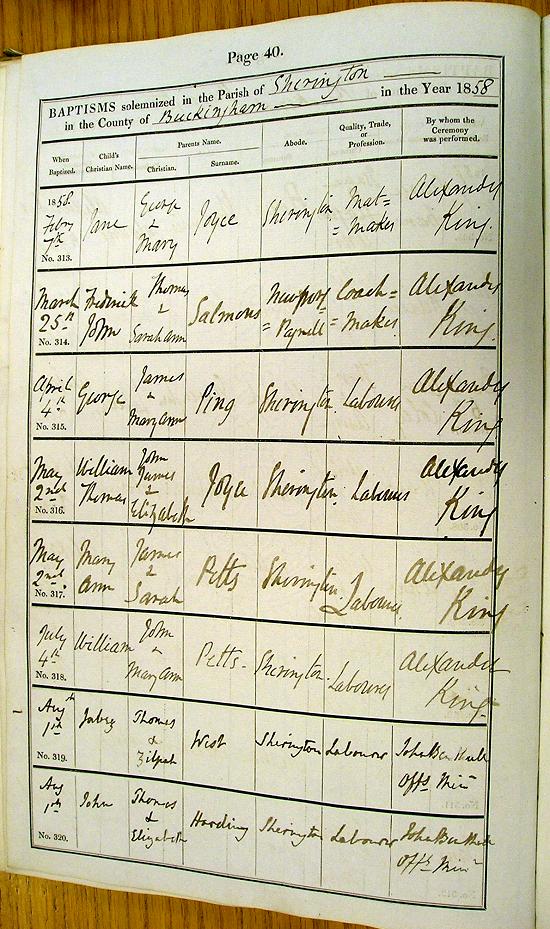 Page 40.
BAPTISMS solemnized in the Parish of Sherington
in the County of Buckingham in the Year 1858
When Baptized. Child's Christian Name. Parents Name. Christian. Surname. Abode. Quality, Trade, or Profession. By whom the Ceremony was performed.
1858. Feby 7th No. 313. Jane George & Mary Joyce Sherington Mat= =maker Alexander King.
March 25th No. 314. Frederick John Thomas & Sarah Ann Salmons Newport =Pagnell Coach= =Maker Alexander King.
April 4th No. 315. George James & Mary Ann Ping Sherington. Labourer Alexander King
May 2nd No. 316. William Thomas John James & Elizabeth Joyce Sherington. Labourer Alexander King
May 2nd No. 317. Mary Ann James & Sarah Petts Sherington. Labourer. Alexander King
July 4th No. 318. William John & Mary Ann Petts. Sherington. Labourer Alexander King.
Aug 1st No. 319. Jabez Thomas & Zilpah West Sherington Labourer John Offg Minr
Aug 1st No. 320. John Thomas & Elizabeth Harding Sherington Labourer John Offg Minr